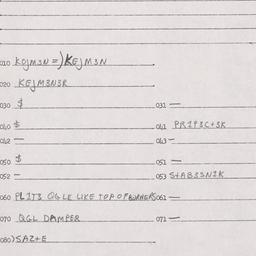 010 KOJM3N =) KEJM3N
020 KEJM3N3R
030 $ 031 —
040 $ 041 PR1P3C+3K
042 — 043 —
050 $ 051 —
052 — 053 S+AB33N2K
060 PL1T3 QGLE LIKE TOP OF BURNERS 061 —
070 QGL DAMPER 071 —
080 )SAZ+E